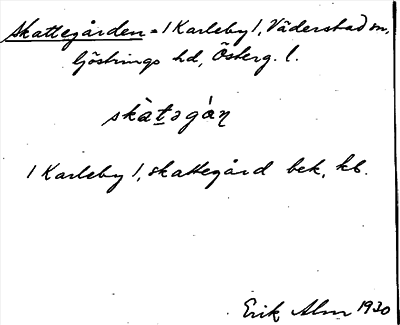 Skattegården = 1 Karleby 1, Väderstad sn,
Göstrings hd, Österg. l.
skàtəgȧ́ꞑ
1 Karleby 1, skattegård bek. kb.
Erik Alm 1930